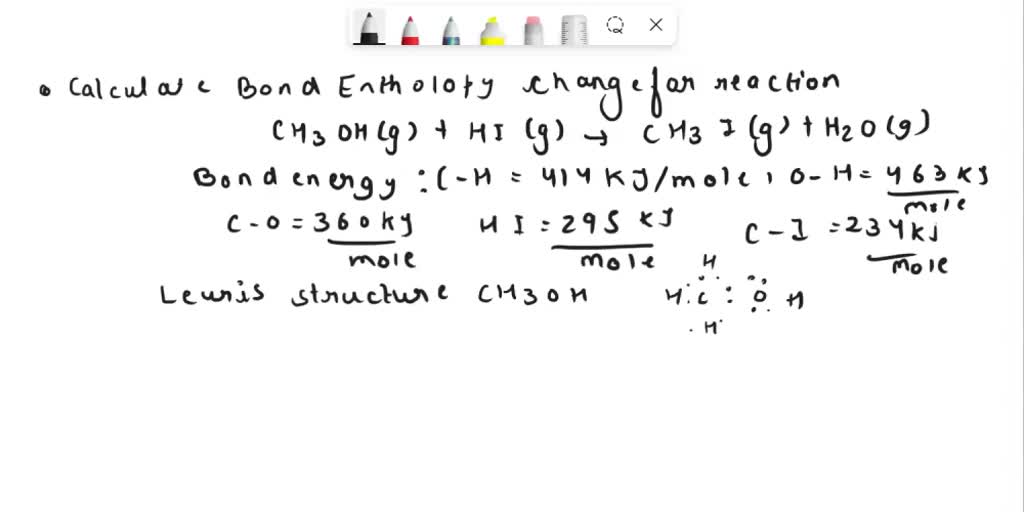 • Calculate Bond Entholopy change for reaction
CH3 OH (g) + HI (g) → CH3 I (g) + H2 O (g)
Bond energy : C-H = 414 KJ/mole, O-H = 463 KJ/mole
C-O = 360 KJ/mole HI = 295 KJ/mole C-I = 234 KJ/mole
Lewis structure CH3OH H : C : O H
H
H